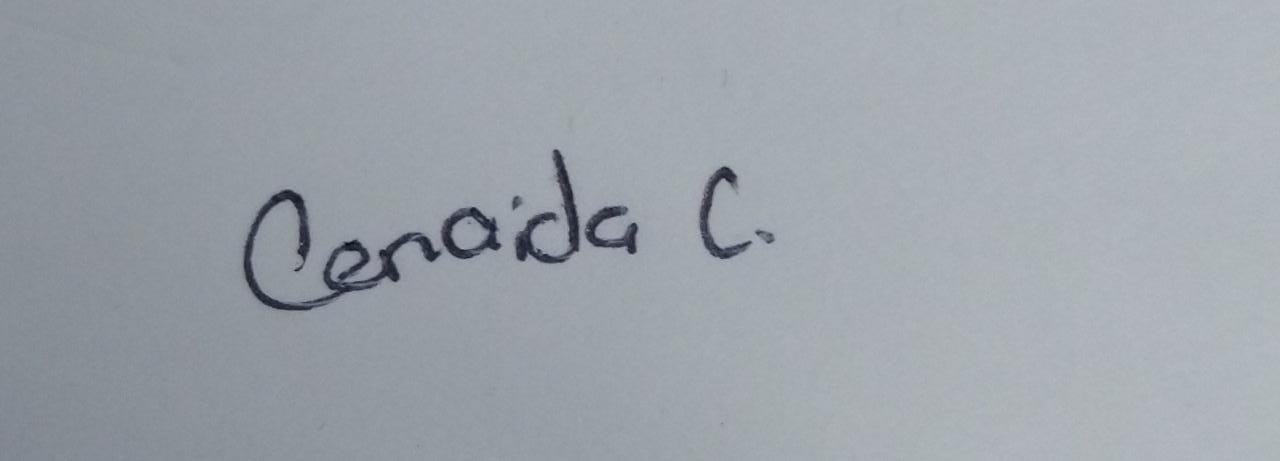 Cenaida C.